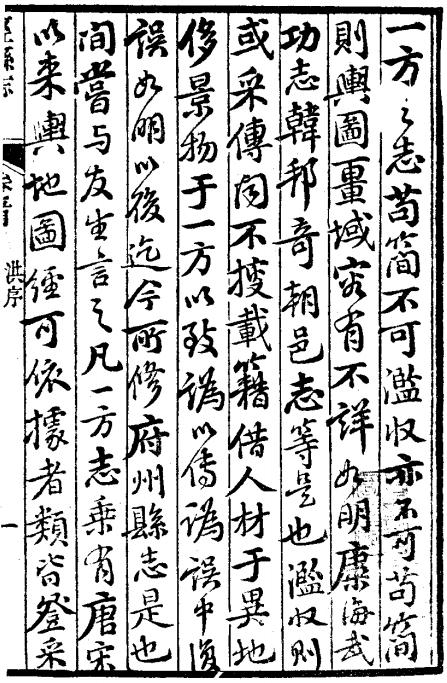 一方之志苟簡不可濫收亦不可苟簡
則輿圖畺域容有不詳如明康海武
功志韓邦奇朝邑志等是也濫收則
或采傳聞不搜載籍借人材于異地
侈景物于一方以致譌以傳譌誤中復
誤如明以後迄今所修府州縣志是也
間嘗与友生言之凡一方志乘有唐宋
以来輿地圖經可依據者類皆登采
縣志 洪序 一